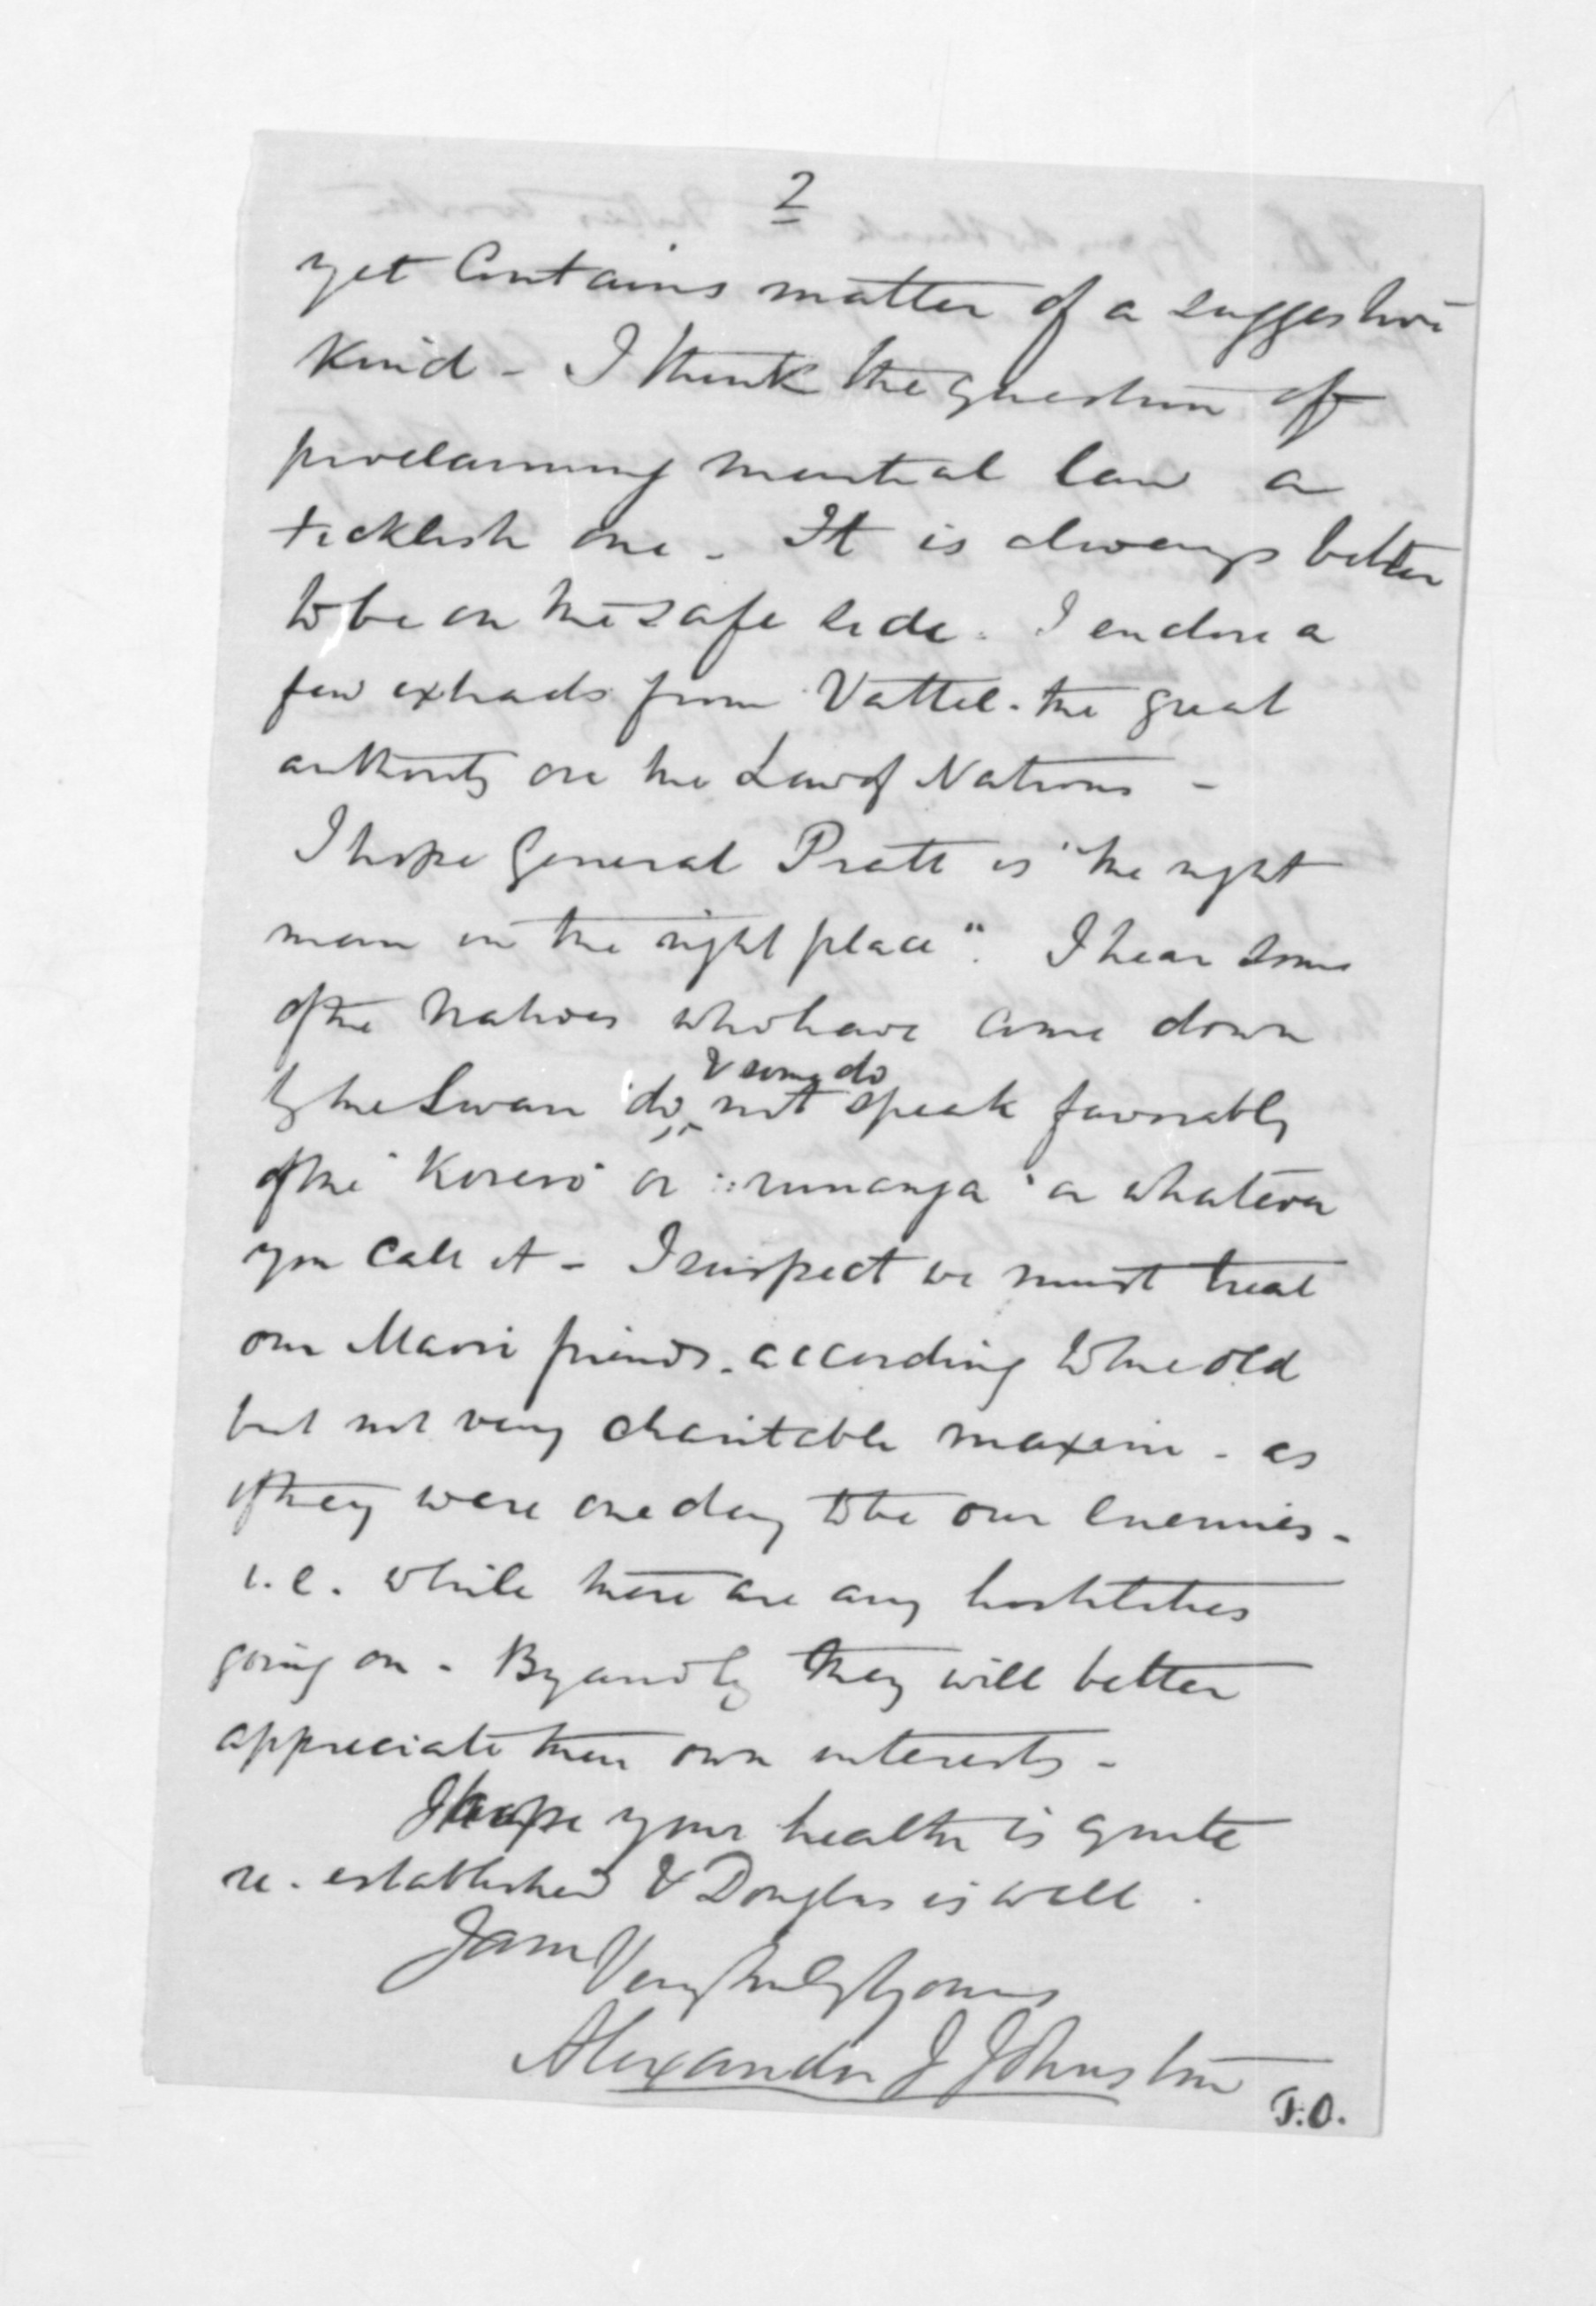 2
yet contains matter of a suggestive
kind - I think the question of
proclaiming martial law a
ticklish one - It is always better
to be on the safe side. I enclose a
few extracts from Vattel - the great
authority on the Law of Nations -
I hope General Pratt is "the right
man in the right place". I hear some
of the Natives who have come down
& some do
by the Swan do not speak favorably
of the "Korero" or "runanga" or whatever
you call it - I suspect we must treat
our Maori friends - according to the old
but not very charitable maxim - as
if they were one day to be our enemies -
i.e. while there are any hostilities
going on - By and by they will better
appreciate their own interests -
I hope your health is quite
re-established & Douglas is well.
I am Very truly yours
Alexander J Johnston
T.O.